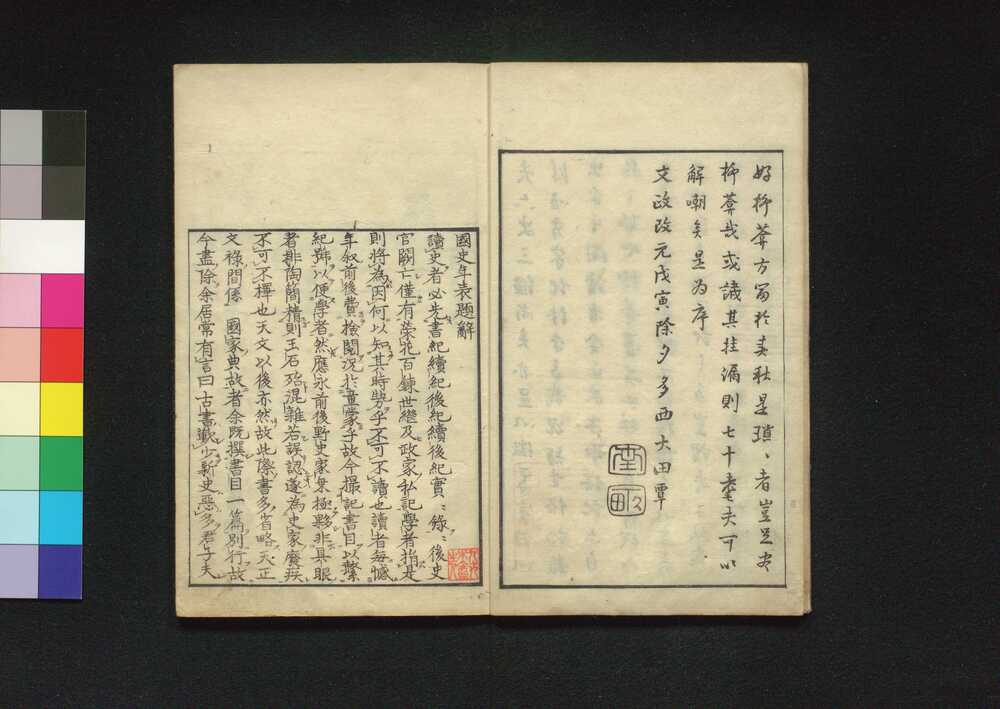 好抑葊方習於春秋是瑣〻者豈足尽
抑葊哉或議其挂漏則七十耋夫可以
解嘲矣是为序
文政改元戊寅除夕多西大田覃
國史年表題辭
讀史者必先書紀續紀後紀續後紀實〻錄〻後史
官闕亡僅有榮花百錬世繼及政家私記學者指是
則將為因何以知其時勢乎不可不讀也讀者每憾
年叙前後費撿閲况於童蒙乎故今撮記書目以繫
紀號以便學者然應永前後野史家乗極夥非具眼
者排陶簡精則玉石殆混雜若誤認遂為史家廢疾
不可不擇也天文以後亦然故此際書多省略天正
文禄間係國家典故者余既撰書目一篇別行故
今盡除余居常有言曰古書歎少新史惡多君子夫